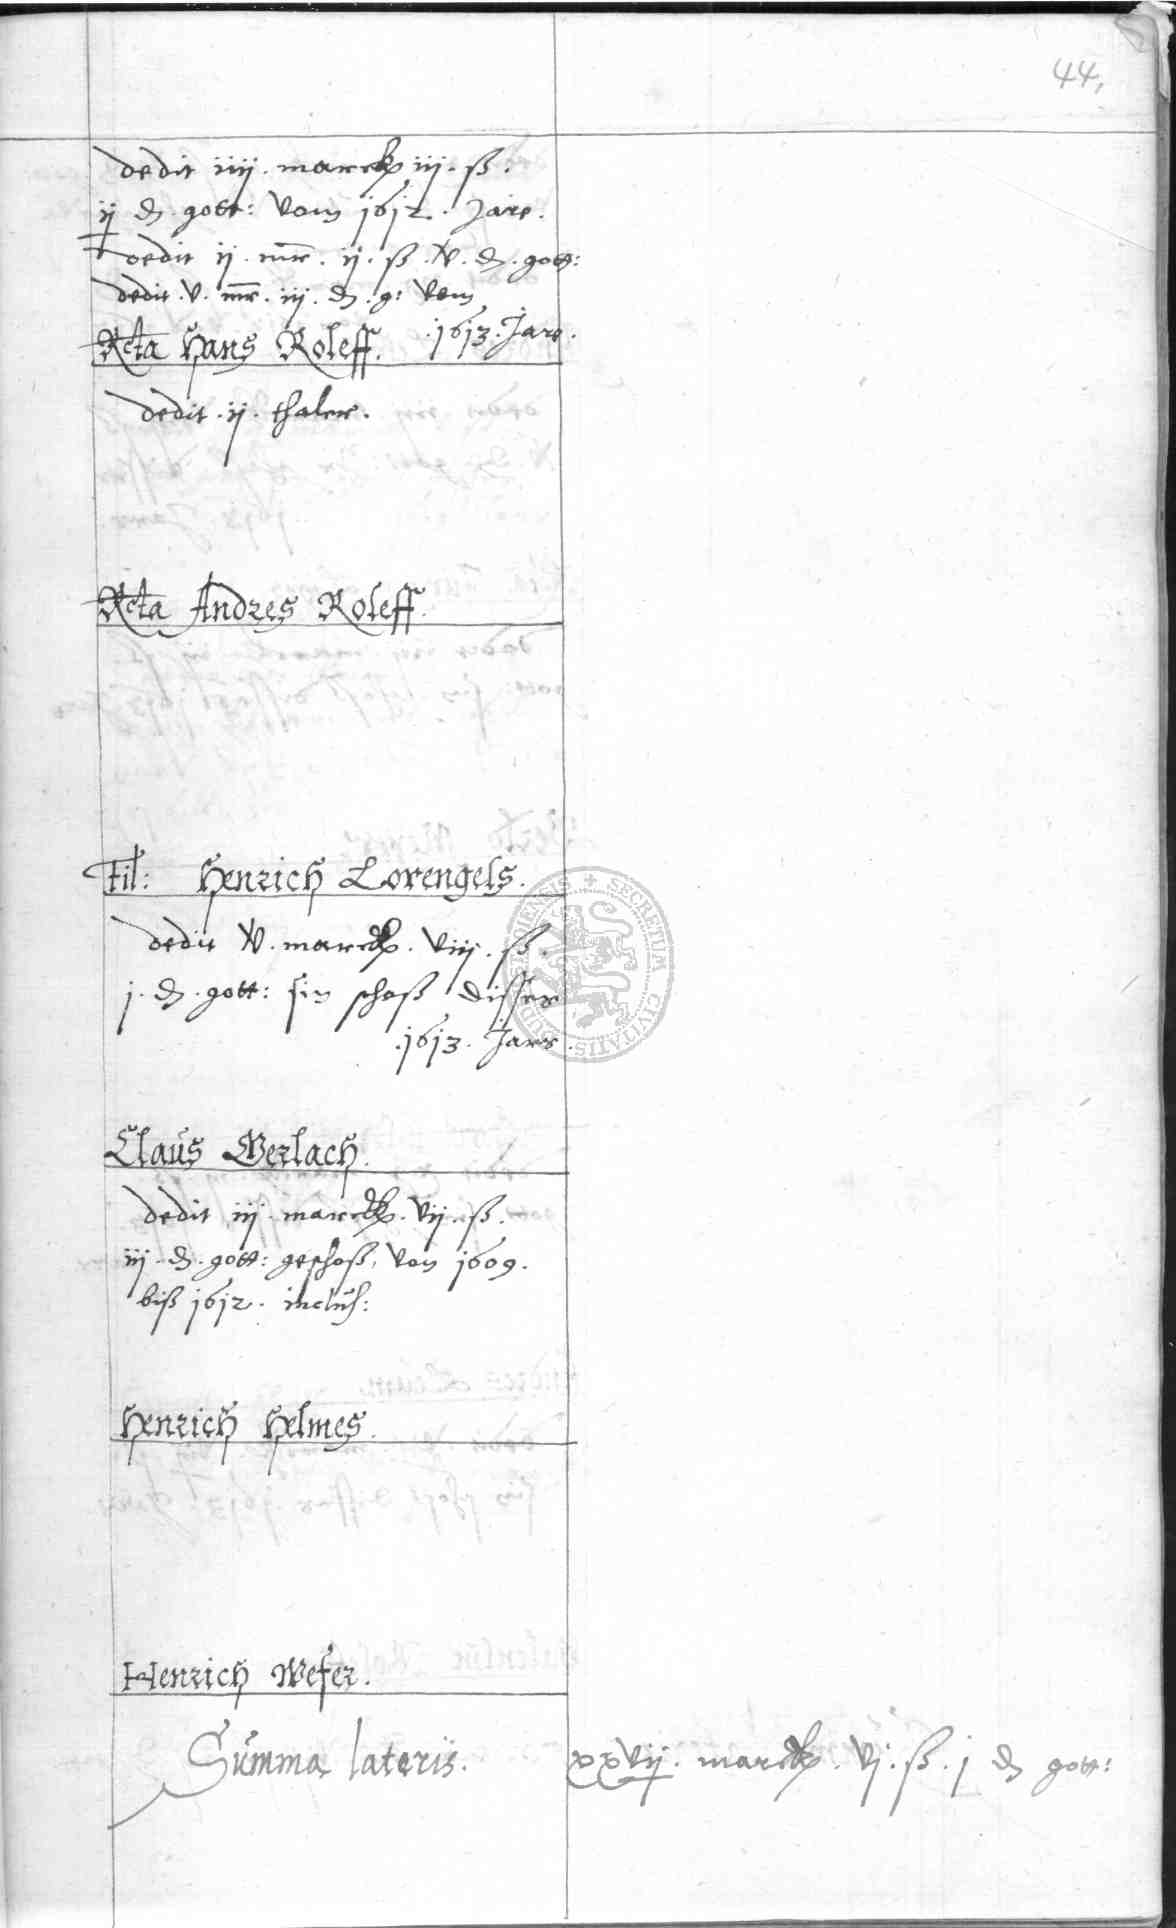 44,
dedit iiij. marck iij. ß.
ij ₰. gott: vom 1612. Jare.
dedit ij. mr. ij. ß. v. ₰. gott:
dedit. v. mr. iij. ₰. g: vom
Rcta Hans Roleff. .1613. Jare.
dedit. ij. thaler.
Rcta Andres Roleff.
Fil: Henrich Lorengels.
dedit v. marck. viij. ß.
j. ₰. gott: sin schoß disser
.1613. Jars.
SECRETUM CIVITATIS
Claus Gerlach.
dedit iij. marck. vij. ß.
iij. ₰. gott: geschoß, von 1609.
biß 1612. inclus:
Henrich Helmes.
Henrich Wefer.
Summa lateris. xxvij. marck. vj. ß. j ₰ gott: